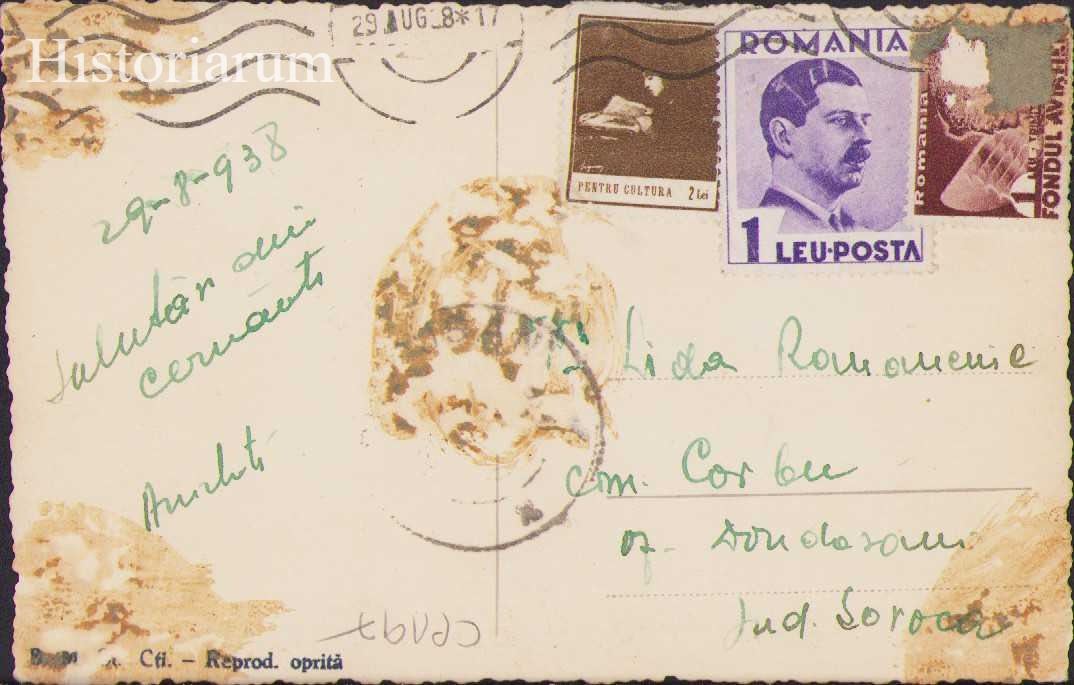 Historiarum
29 AUG 38*17
PENTRU CULTURA 2 Lei
ROMANIA
1 LEU·POSTA
Romania
1 LEU
FONDUL AVIAȚIEI
29-8-938
Salutări din
cernăuți
Lida Romanenic
com. Corbu
of. Dondasani
Jud. Soroca
Cți. – Reprod. oprită